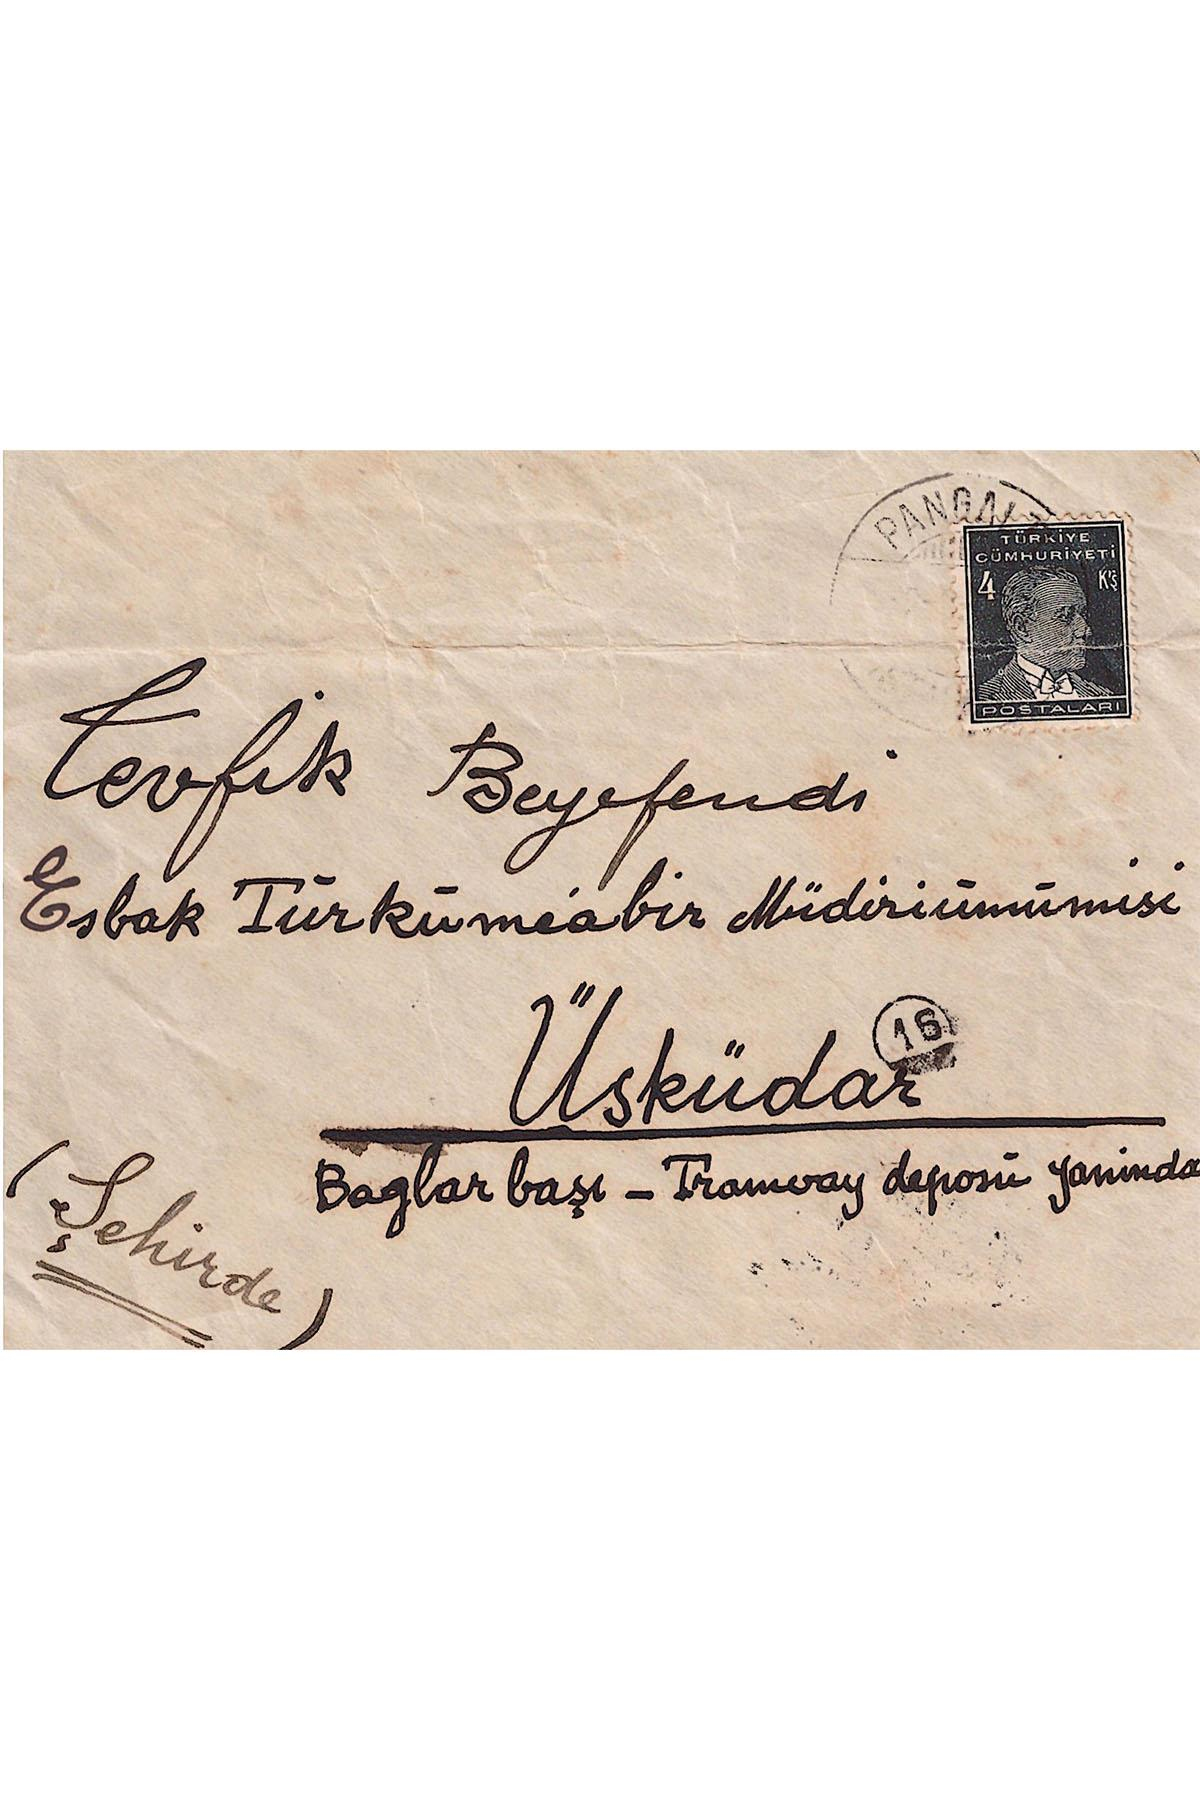 PANGAL
TÜRKİYE
CÜMHURİYETİ
4 K'ş
POSTALARI
Tevfik Beyefendi
Esbak Tūrkūmeabir Müdiriūmūmisi
16
Üsküdar
Baglar başı - Tramvay deposū yanında
(Şehirde)